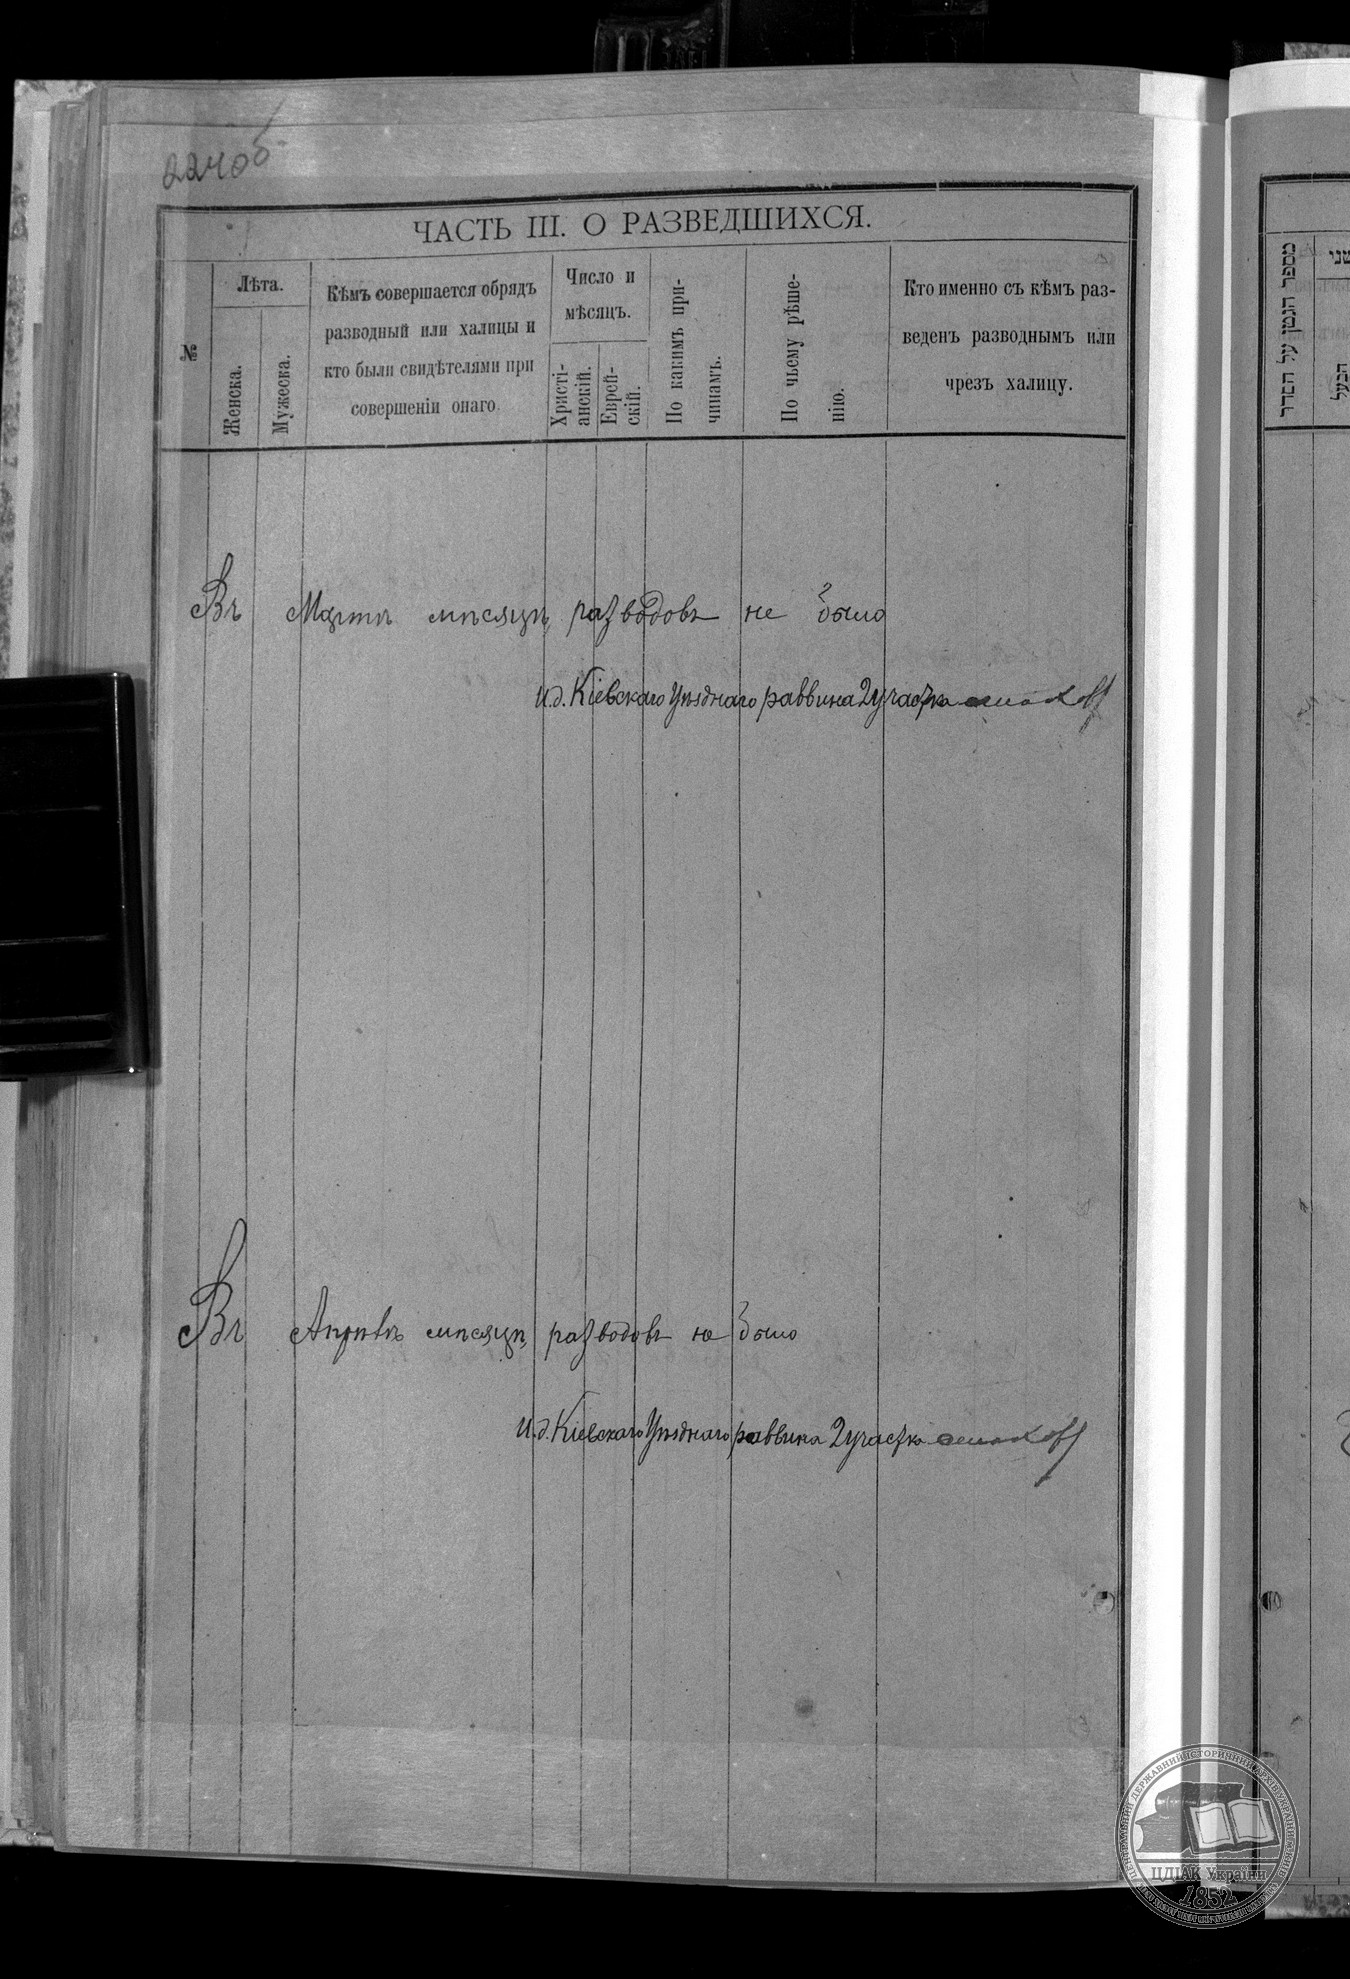 224об
ЧАСТЬ III. О РАЗВЕДШИХСЯ.
№
Лѣта.
Женска.
Мужеска.
Кѣмъ совершается обрядъ
разводный или халицы и
кто были свидѣтелями при
совершеніи онаго.
Число и
мѣсяцъ.
Христі-
анскій.
Еврей-
скій.
По какимъ при-
чинамъ.
По чьему рѣше-
нію.
Кто именно съ кѣмъ раз-
веденъ разводнымъ или
чрезъ халицу.
Въ Мартѣ мѣсяцѣ разводовъ не было
И.д. Кіевскаго Уѣзднаго раввина 2 участка
Въ Апрѣлѣ мѣсяцѣ разводовъ не было
И.д. Кіевскаго Уѣзднаго раввина 2 участка
מספר הנמן על הסדר
הבעל
ЦДІАК України
1852